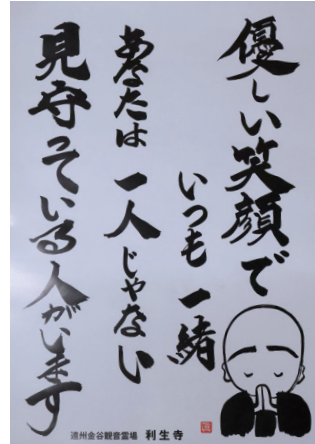 優しい笑顔で
いつも一緒
あなたは一人じゃない
見守っている人がいます
遠州金谷観音霊場 利生寺